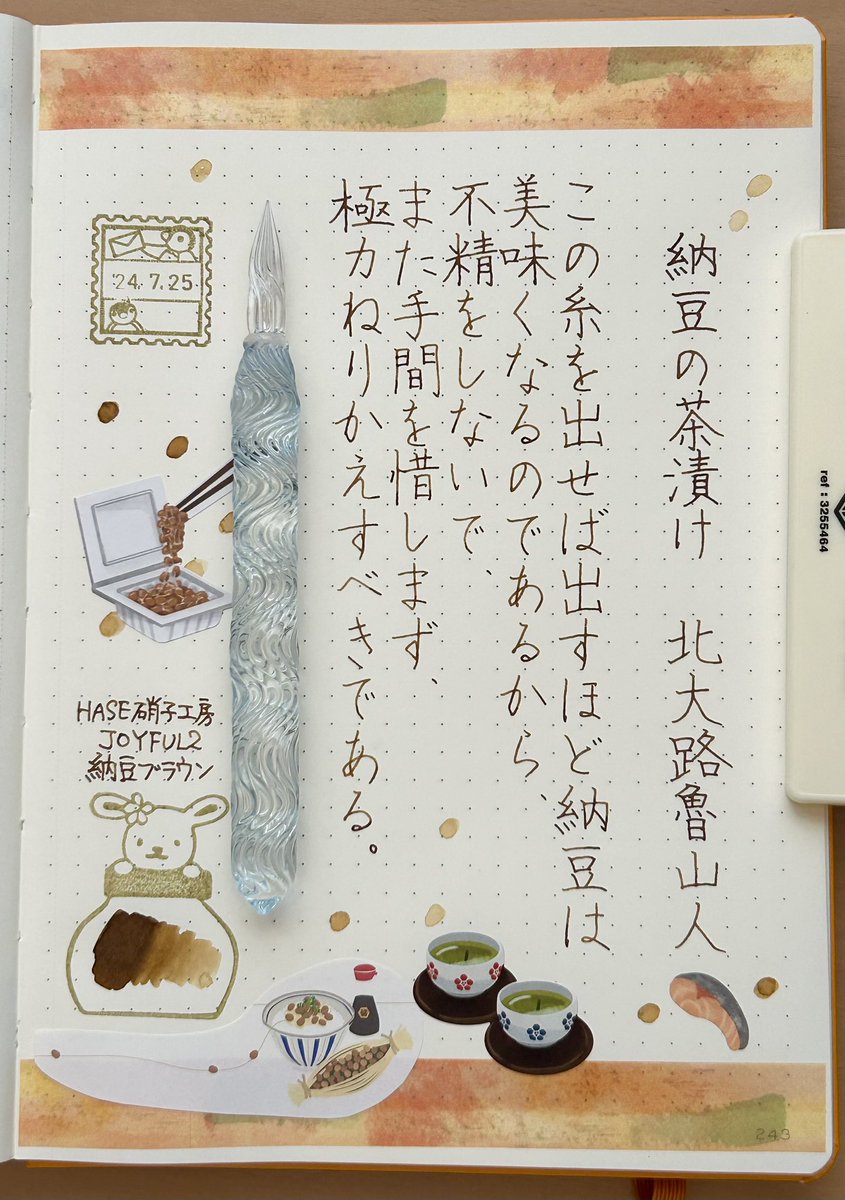 納豆の茶漬け 北大路魯山人
この糸を出せば出すほど納豆は
美味くなるのであるから、
不精をしないで、
また手間を惜しまず、
極力ねりかえすべきである。
'24.7.25
HASE硝子工房
JOYFUL2
納豆ブラウン
ref : 3255464
243